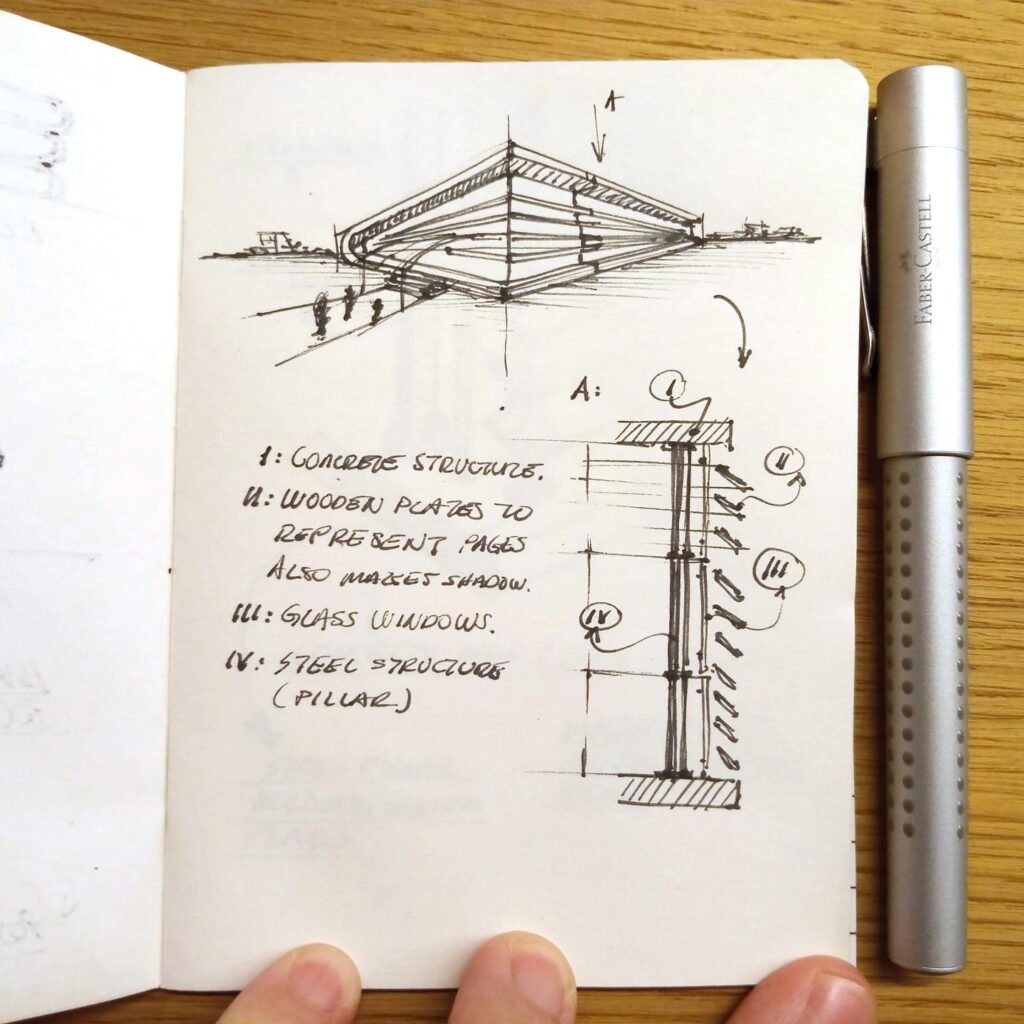 A
A:
I
I: CONCRETE STRUCTURE.
II
II: WOODEN PLATES TO
REPRESENT PAGES
ALSO MAKES SHADOW.
III
III: GLASS WINDOWS.
IV
IV: STEEL STRUCTURE
(PILLAR)
FABER-CASTELL